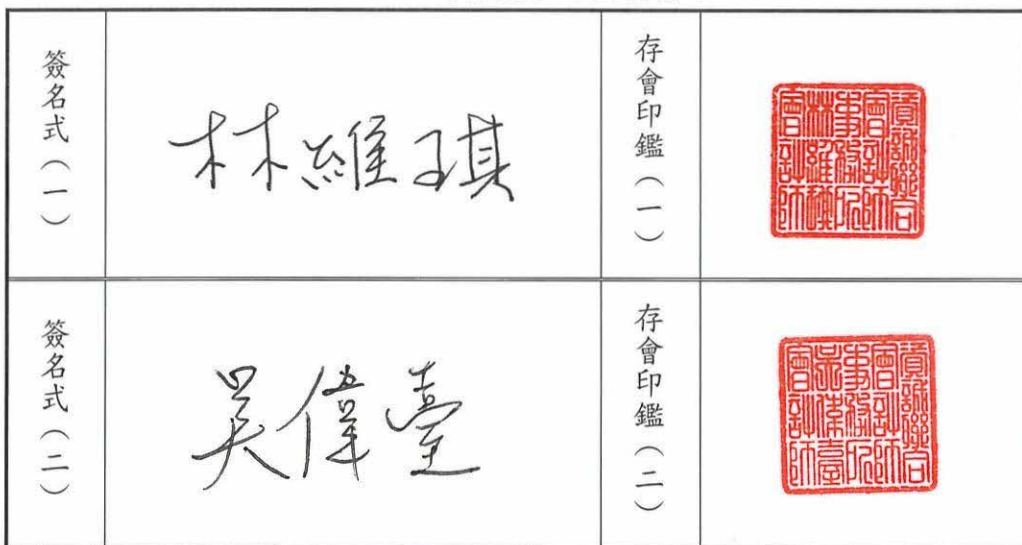 簽名式（一）
林維琪
存會印鑑（一）
資誠聯合
會計師
事務所
林維琪
會計師
簽名式（二）
吳偉臺
存會印鑑（二）
資誠聯合
會計師
事務所
吳偉臺
會計師